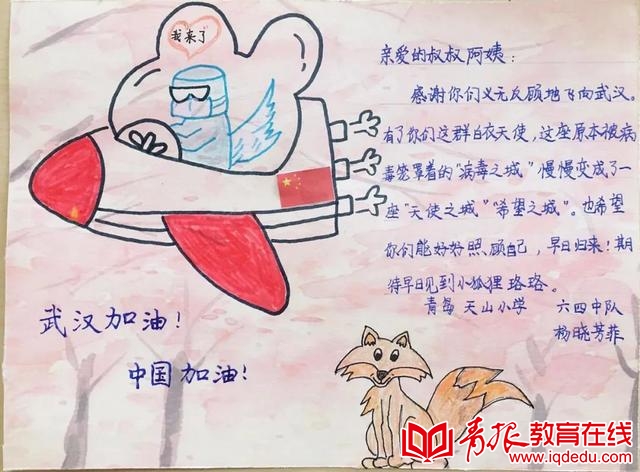 我来了
亲爱的叔叔阿姨：
感谢你们义无反顾地飞向武汉。
有了你们这群白衣天使，这座原本被病
毒笼罩着的“病毒之城”慢慢变成了一
座“天使之城”“希望之城”。也希望
你们能好好照顾自己，早日归来！期
待早日见到小狐狸珞珞。
青岛天山小学 六四中队
杨晓芳菲
武汉加油！
中国加油！
青报教育在线
www.iqdedu.com